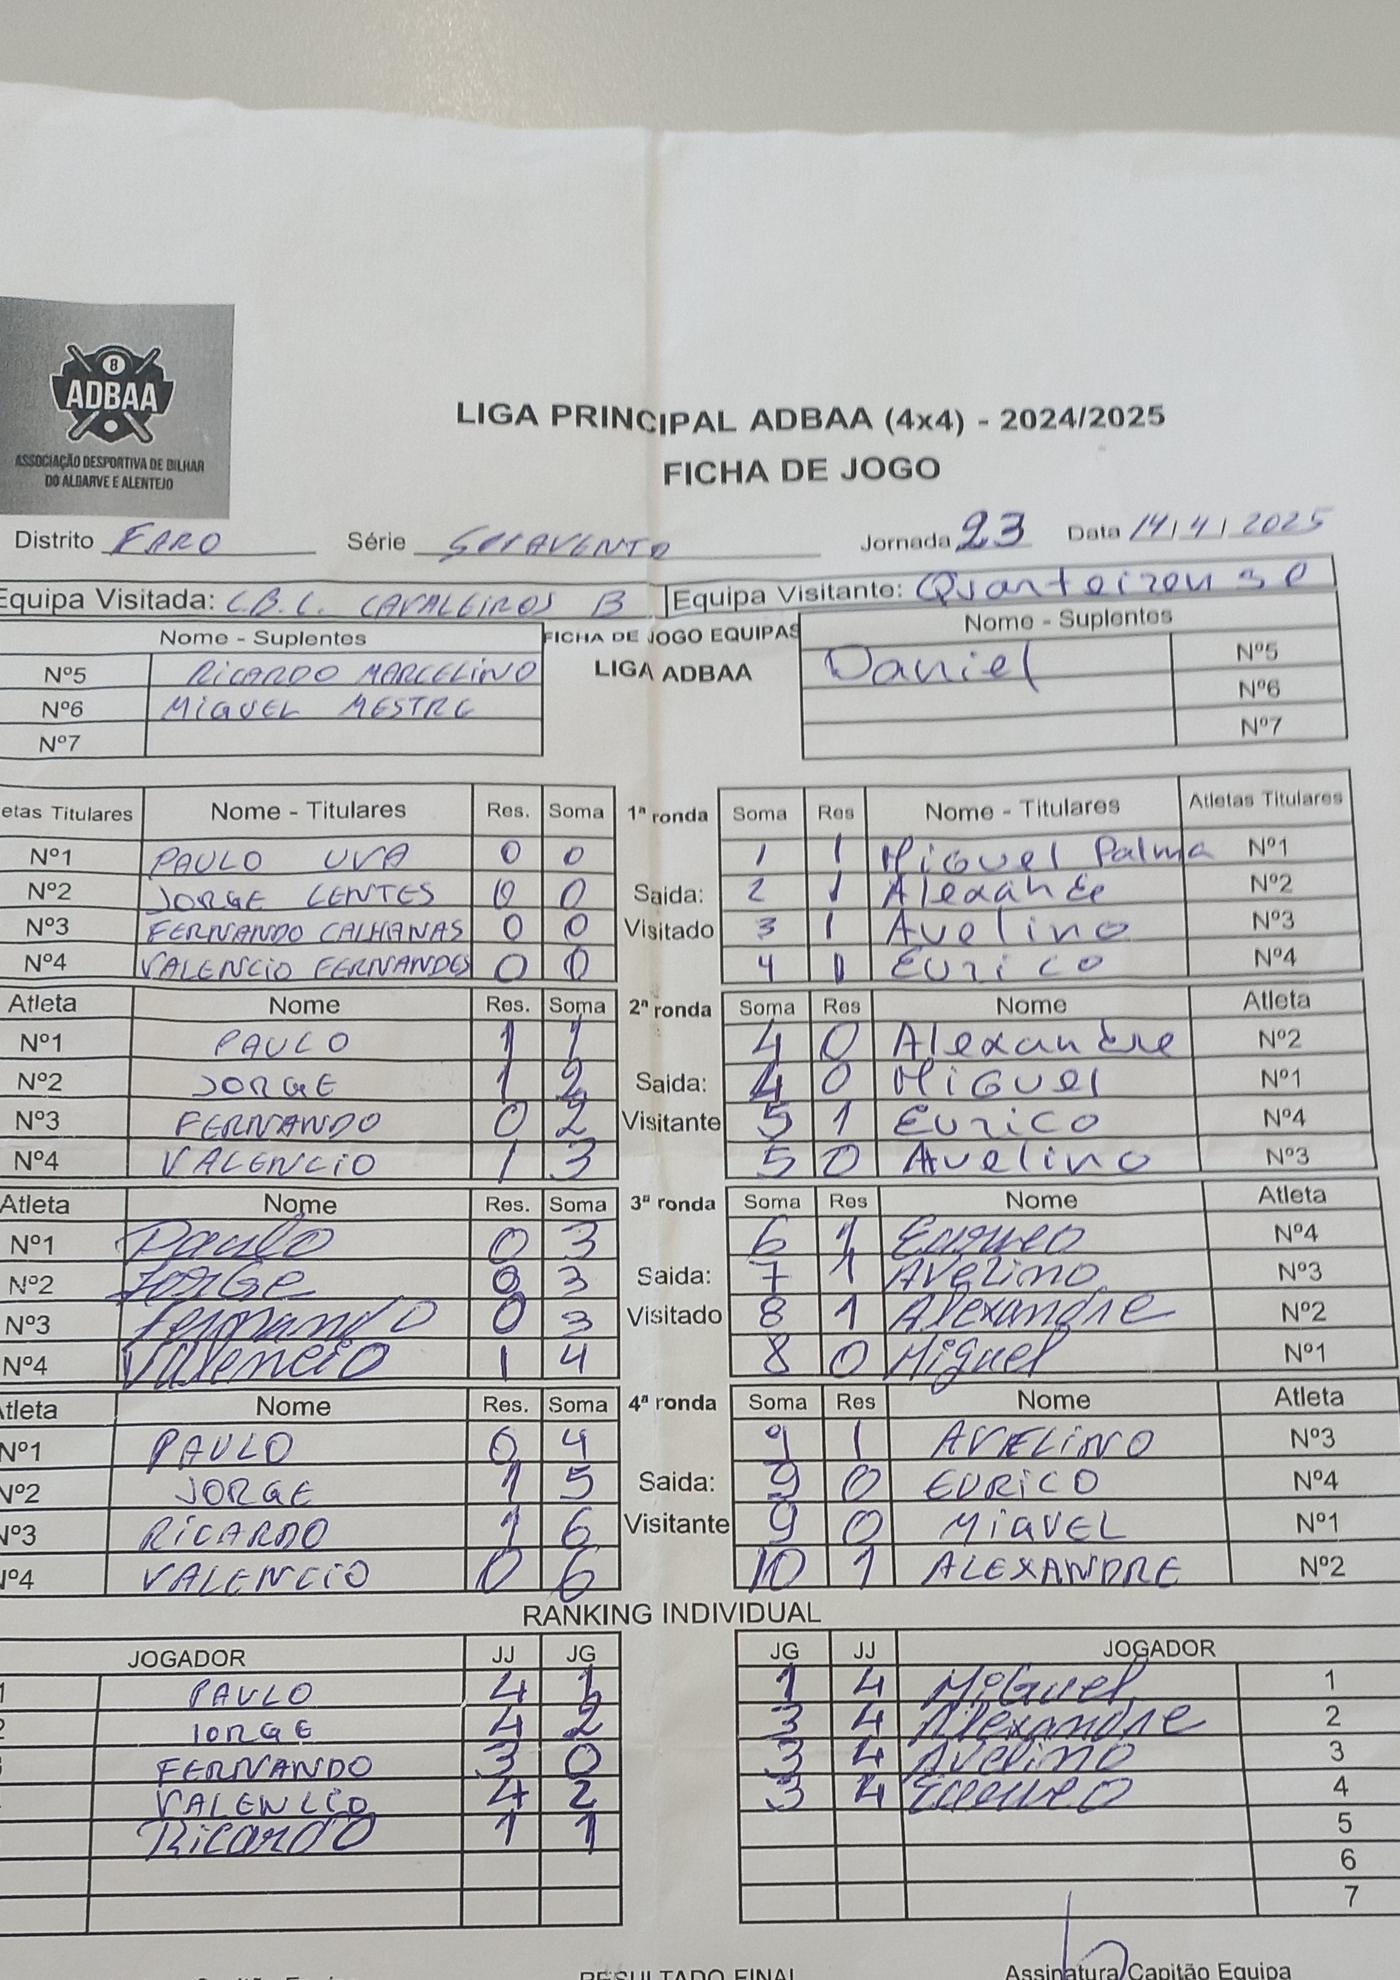 8
ADBAA
ASSOCIAÇÃO DESPORTIVA DE BILHAR
DO ALGARVE E ALENTEJO
LIGA PRINCIPAL ADBAA (4x4) - 2024/2025
FICHA DE JOGO
Distrito FARO Série SOTAVENTO Jornada 23 Data 14/4/2025
Equipa Visitada: C.B.L. CAVALEIROS B Equipa Visitante: Quarteirense
Nome - Suplentes FICHA DE JOGO EQUIPAS Nome - Suplentes
LIGA ADBAA
Nº5 RICARDO MARCELINO Daniel Nº5
Nº6 MIGUEL MESTRE Nº6
Nº7 Nº7
etas Titulares Nome - Titulares Res. Soma 1ª ronda Soma Res Nome - Titulares Atletas Titulares
Nº1 PAULO UVA 0 0 1 1 Miguel Palma Nº1
Nº2 JORGE LENTES 0 0 Saida: 2 1 Alexandre Nº2
Nº3 FERNANDO CALHANAS 0 0 Visitado 3 1 Avelino Nº3
Nº4 VALENCIO FERNANDES 0 0 4 1 Eurico Nº4
Atleta Nome Res. Soma 2ª ronda Soma Res Nome Atleta
Nº1 PAULO 1 1 4 0 Alexandre Nº2
Nº2 JORGE 1 2 Saida: 4 0 Miguel Nº1
Nº3 FERNANDO 0 2 Visitante 5 1 Eurico Nº4
Nº4 VALENCIO 1 3 5 0 Avelino Nº3
Atleta Nome Res. Soma 3ª ronda Soma Res Nome Atleta
Nº1 Paulo 0 3 6 1 Eurico Nº4
Nº2 Jorge 0 3 Saida: 7 1 Avelino Nº3
Nº3 Fernando 0 3 Visitado 8 1 Alexandre Nº2
Nº4 Valencio 1 4 8 0 Miguel Nº1
tleta Nome Res. Soma 4ª ronda Soma Res Nome Atleta
Nº1 PAULO 0 4 9 1 AVELINO Nº3
Nº2 JORGE 1 5 Saida: 9 0 EURICO Nº4
Nº3 RICARDO 1 6 Visitante 9 0 MIGUEL Nº1
Nº4 VALENCIO 0 6 10 1 ALEXANDRE Nº2
RANKING INDIVIDUAL
JOGADOR JJ JG JG JJ JOGADOR
PAULO 4 1 1 4 Miguel 1
JORGE 4 2 3 4 Alexandre 2
FERNANDO 3 0 3 4 Avelino 3
VALENCIO 4 2 3 4 Eurico 4
Ricardo 1 1 5
6
7
RESULTADO FINAL Assinatura Capitão Equipa